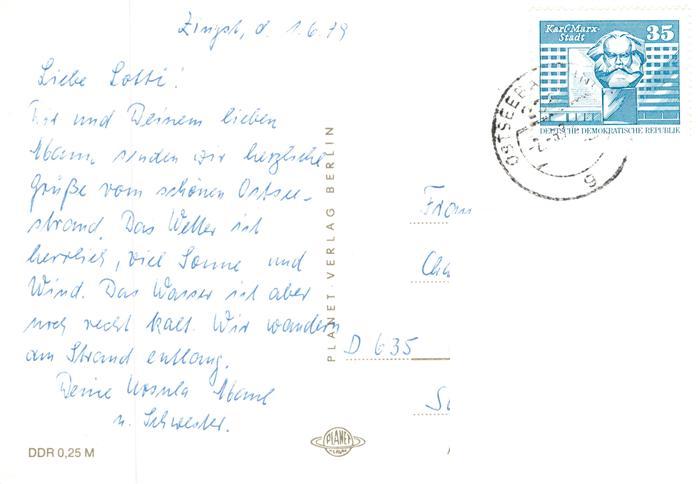 Zingst, d. 1.6.79
Liebe Lotti!
Dir und Deinem lieben
Mann senden wir herzliche
Grüße vom schönen Ostsee-
strand. Das Wetter ist
herrlich, viel Sonne und
Wind. Das Wasser ist aber
noch recht kalt. Wir wandern
am Strand entlang.
Deine Ursula
u. Schwester.
DDR 0,25 M
PLANET-VERLAG BERLIN
PLANET
VERLAG
Karl-Marx-
Stadt
35
DEUTSCHE DEMOKRATISCHE REPUBLIK
OSTSEEBA
g
Frau
D 635